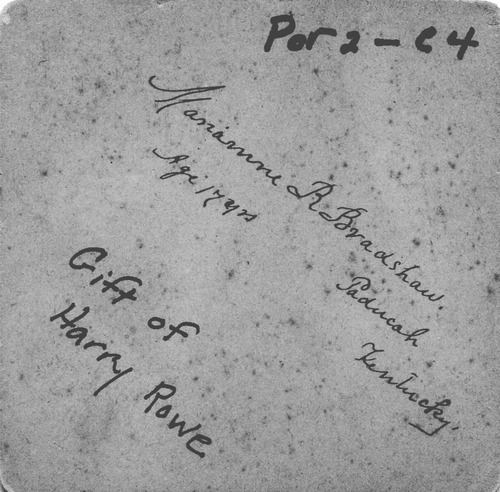 Por 2 - C4
Marianne R Bradshaw.
Age 17 yrs
Paducah
Kentucky.
Gift of
Harry Rowe